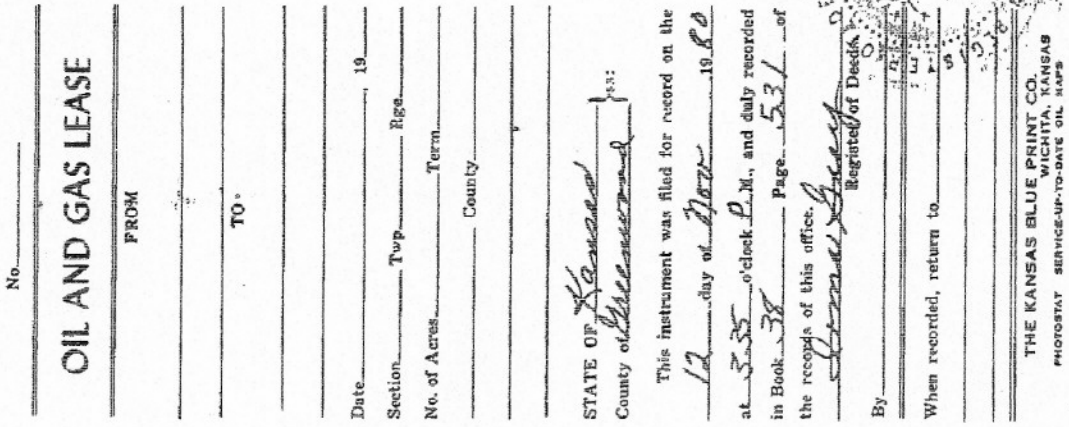 No.
OIL AND GAS LEASE
FROM
TO
Date , 19
Section Twp Rge.
No. of Acres Term
County
STATE OF Kansas } ss:
County of Greenwood
This instrument was filed for record on the
12 day of Nov 19 80
at 3:35 o'clock P.M., and duly recorded
in Book 38 Page 531 of
the records of this office.
Register of Deeds
By
When recorded, return to
THE KANSAS BLUE PRINT CO.
WICHITA, KANSAS
PHOTOSTAT SERVICE-UP-TO-DATE OIL MAPS